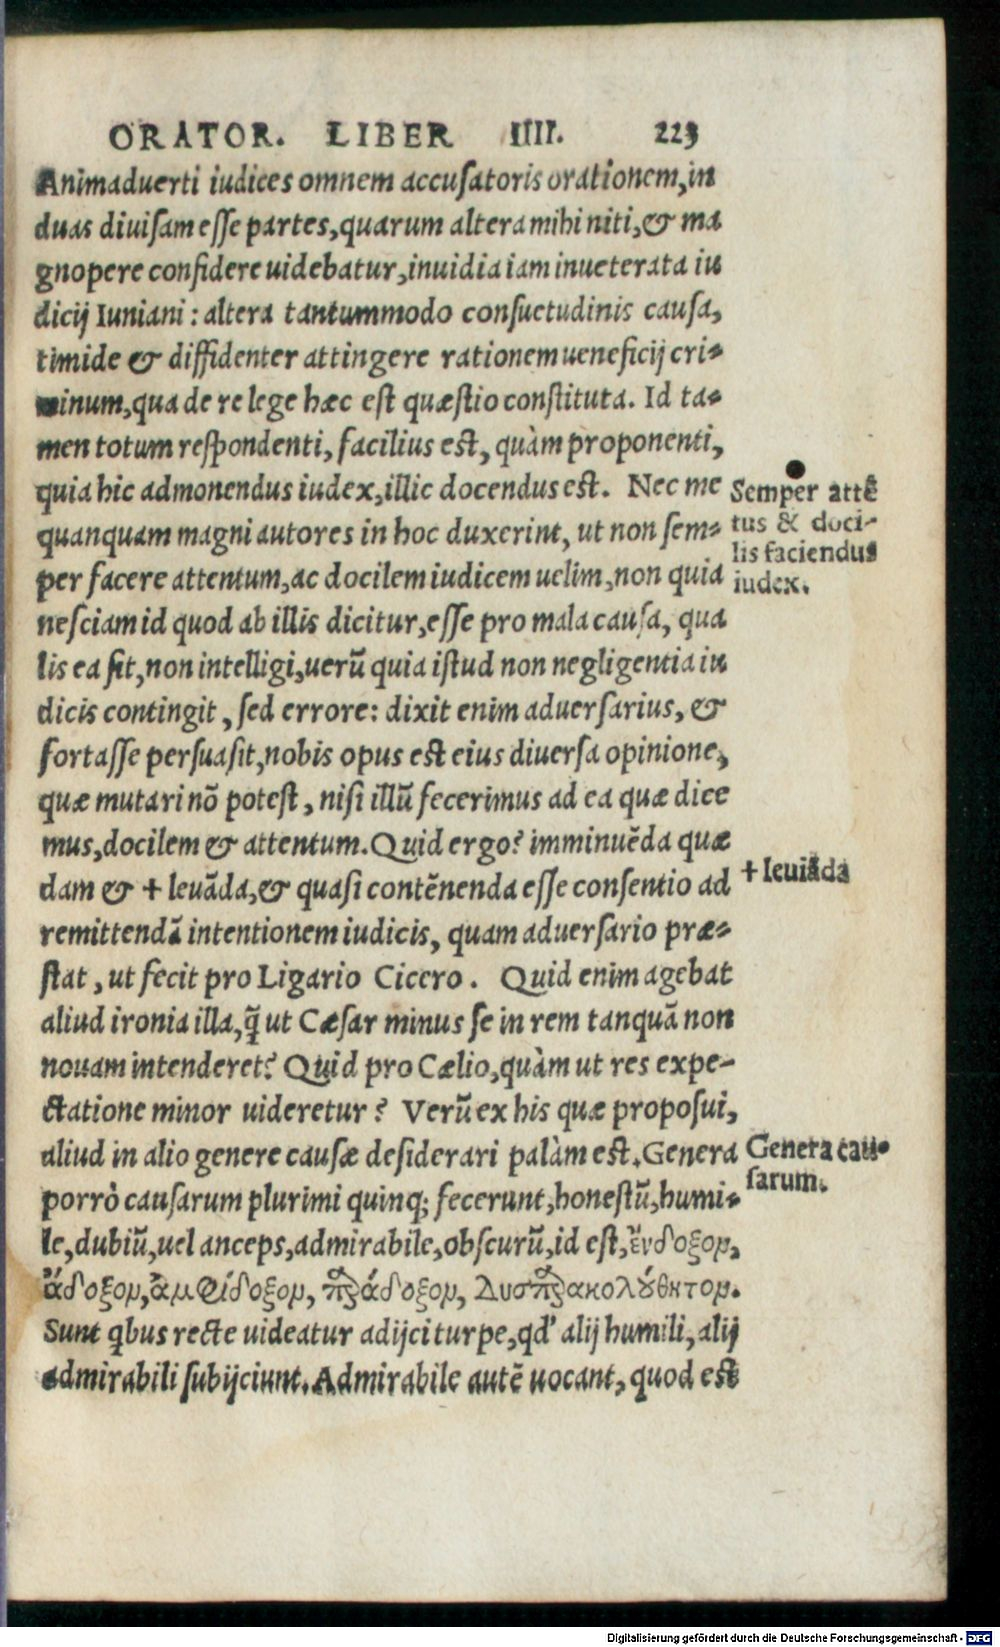 ORATOR. LIBER IIII. 223
Animaduerti iudices omnem accusatoris orationem,in
duas diuisam esse partes,quarum altera mihi niti,& ma
gnopere confidere uidebatur,inuidia iam inueterata iu
dicij Iuniani: altera tantummodo consuetudinis causa,
timide & diffidenter attingere rationem ueneficij cri-
minum,qua de re lege hæc est quæstio constituta. Id ta-
men totum respondenti, facilius est, quàm proponenti,
quia hic admonendus iudex,illic docendus est. Nec me
quanquam magni autores in hoc duxerint, ut non sem-
per facere attentum,ac docilem iudicem uelim,non quia
nesciam id quod ab illis dicitur,esse pro mala causa, qua
lis ea sit,non intelligi,uerū quia istud non negligentia iu
dicis contingit, sed errore: dixit enim aduersarius, &
fortasse persuasit,nobis opus est eius diuersa opinione,
quæ mutari nō potest, nisi illū fecerimus ad ea quæ dice
mus,docilem & attentum.Quid ergo? imminuēda quæ
dam & + leuāda,& quasi contēnenda esse consentio ad
remittendā intentionem iudicis, quam aduersario præ-
stat, ut fecit pro Ligario Cicero. Quid enim agebat
aliud ironia illa,q̄ ut Cæsar minus se in rem tanquā non
nouam intenderet? Quid pro Cælio,quàm ut res expe-
ctatione minor uideretur? Verū ex his quæ proposui,
aliud in alio genere causæ desiderari palàm est.Genera
porrò causarum plurimi quinq; fecerunt,honestū,humi-
le,dubiū,uel anceps,admirabile,obscurū,id est,ἔνδοξομ,
ἄδοξομ,ἀμφίδοξομ, παράδοξομ, Δυσπαρακολούθητομ.
Sunt qbus recte uideatur adijci turpe,qd' alij humili,alij
admirabili subijciunt.Admirabile autē uocant, quod est
Semper attē
tus & doci-
lis faciendus
iudex.
+ leuiāda
Genera cau-
sarum.
Digitalisierung gefördert durch die Deutsche Forschungsgemeinschaft - DFG